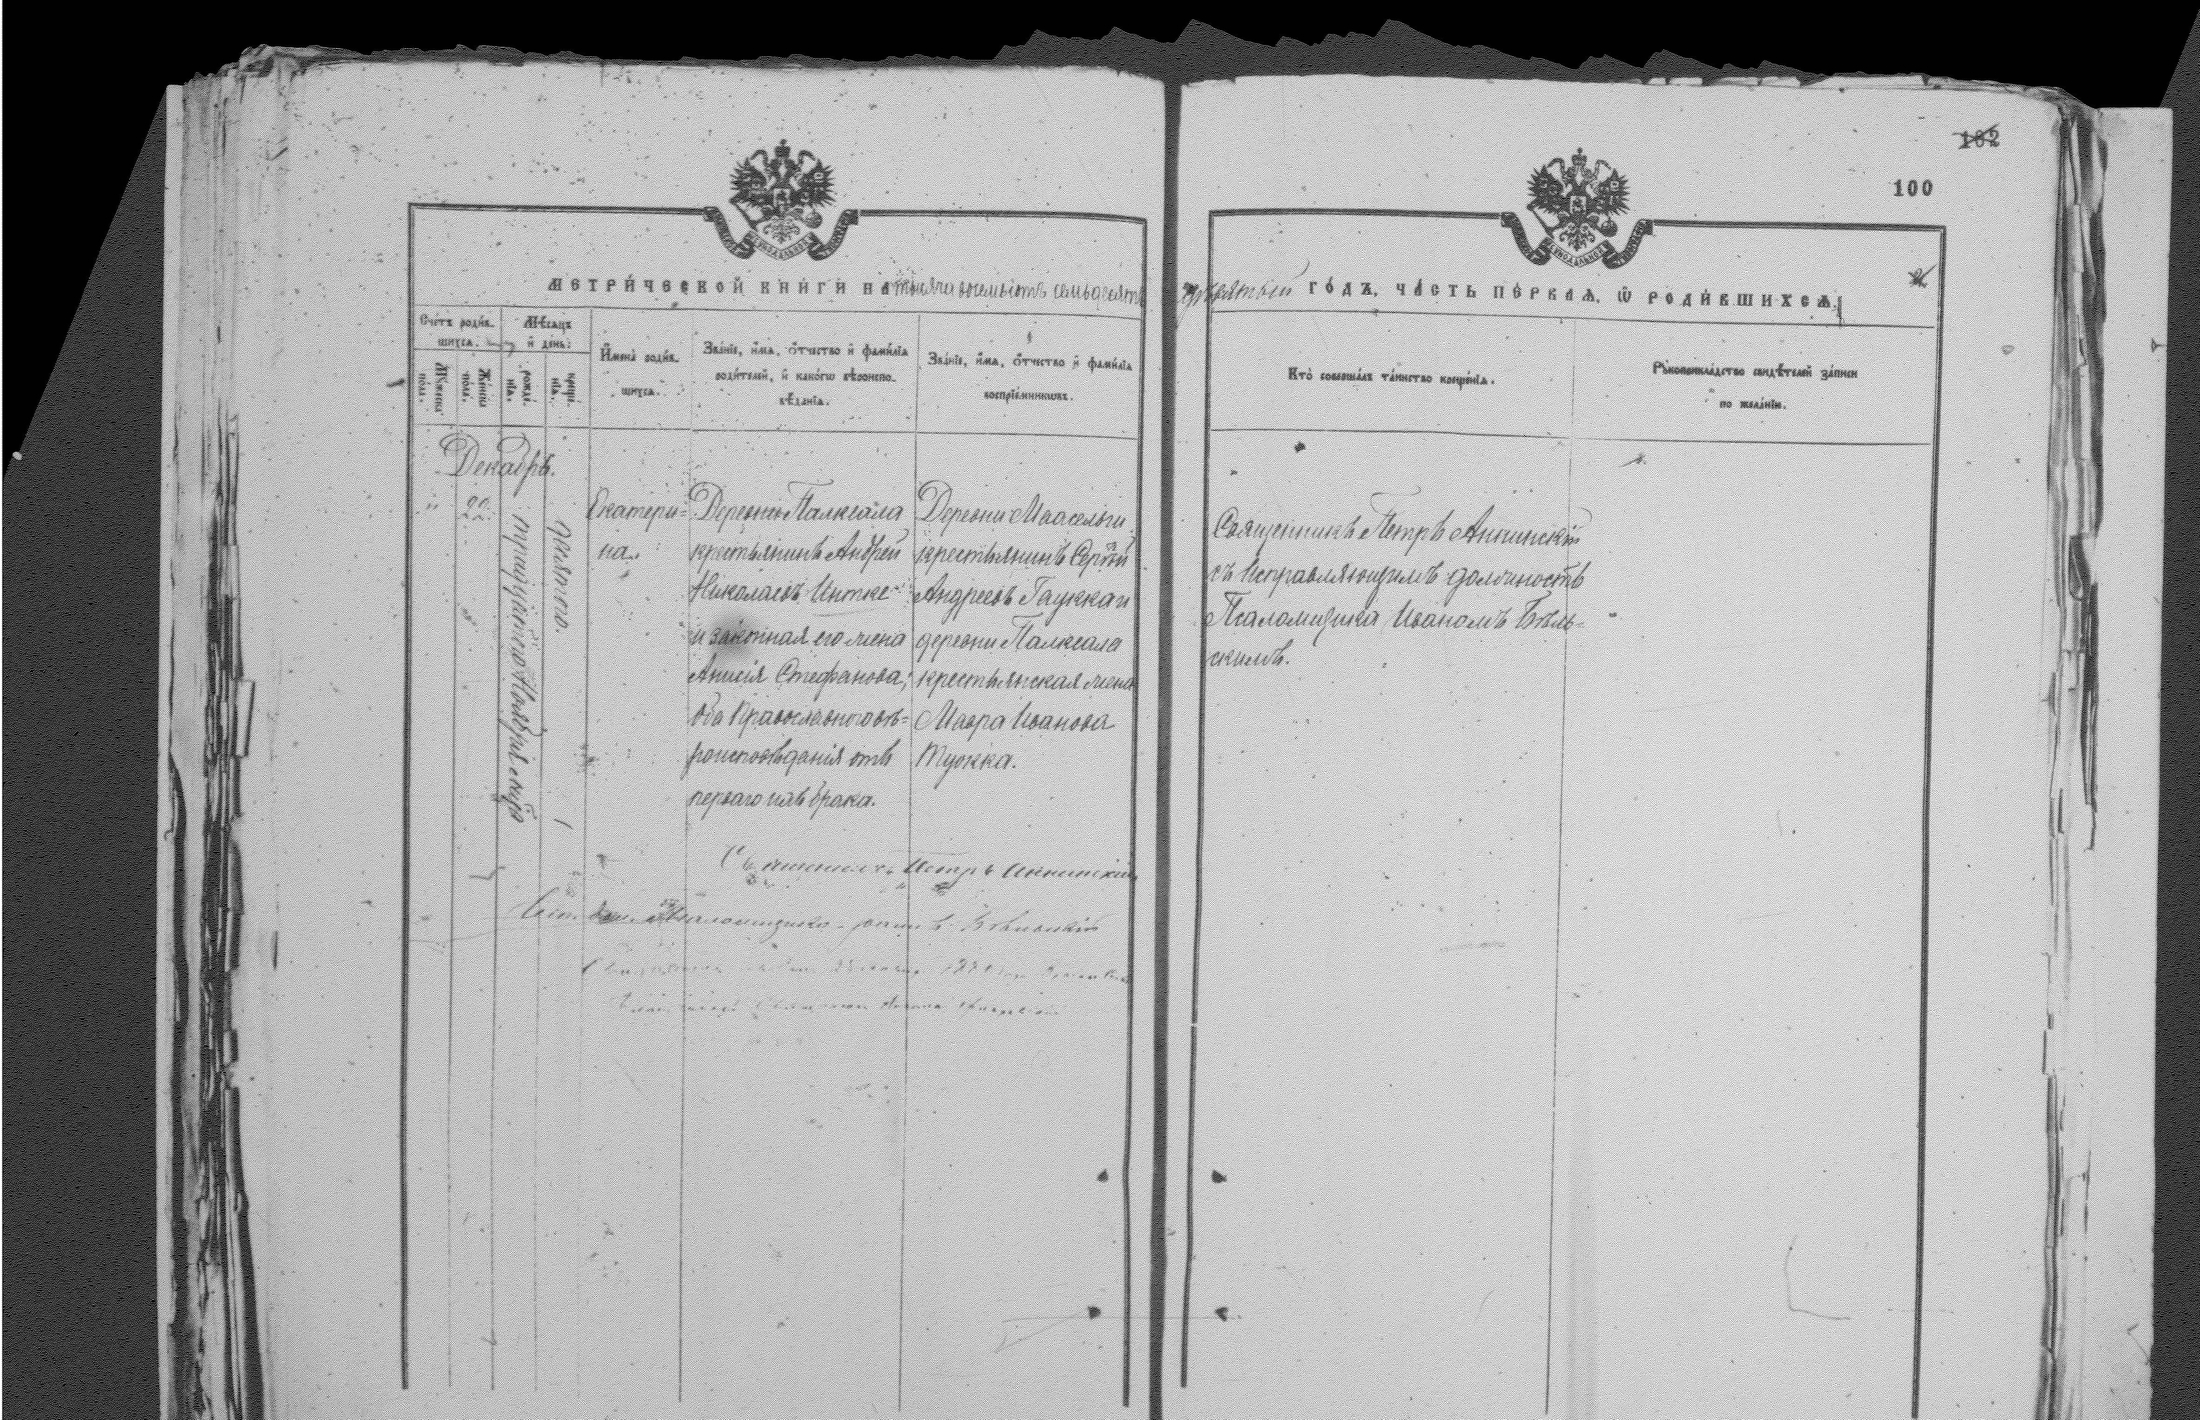 102
100
МЕТРИ́ЧЕСКОЙ КНИ́ГИ НА тысяча восемьсотъ семьдесятъ девятый ГО́ДЪ, ЧА́СТЬ ПЕ́РВАѦ, Ѽ РОДИ́ВШИХСѦ.
Сче́тъ роди́в-
шихсѧ.
Мѣ́сѧцъ
и҆ де́нь:
Му́жеска по́ла.
Же́нска по́ла.
рожде́нїѧ.
креще́нїѧ.
И҆мена̀ роди́в-
шихсѧ.
Зва́нїе, и҆́мѧ, ѻ҆́тчество и҆ фами́лїѧ
роди́телей, и҆ како́гѡ вѣроиспо-
вѣ́данїѧ.
Зва́нїе, и҆́мѧ, ѻ҆́тчество и҆ фами́лїѧ
воспрїе́мникѡвъ.
Кто̀ соверша́лъ та́инство креще́нїѧ.
Рꙋкоприкла́дство свидѣ́телей за́писи
по жела́нїю.
Декабрь.
"
22.
тридцатого Ноября
девятого.
Екатери-
на.
Деревни Палкеала
крестьянинъ Андрей
Николаевъ Интке
и законная его жена
Анисія Стефанова;
оба Православного вѣ-
роисповѣданія отъ
перваго ихъ брака.
Деревни Маасельги
крестьянинъ Сергій
Андреевъ Гауккаи
деревни Палкеала
крестьянская жена
Мавра Иванова
Туокка.
Священникъ Петръ Аннинскій
съ исправляющимъ должность
Псаломщика Иваномъ Бѣль-
скимъ.
Священникъ Петръ Аннинскій
Псаломщика Іоаннъ Бѣльскій